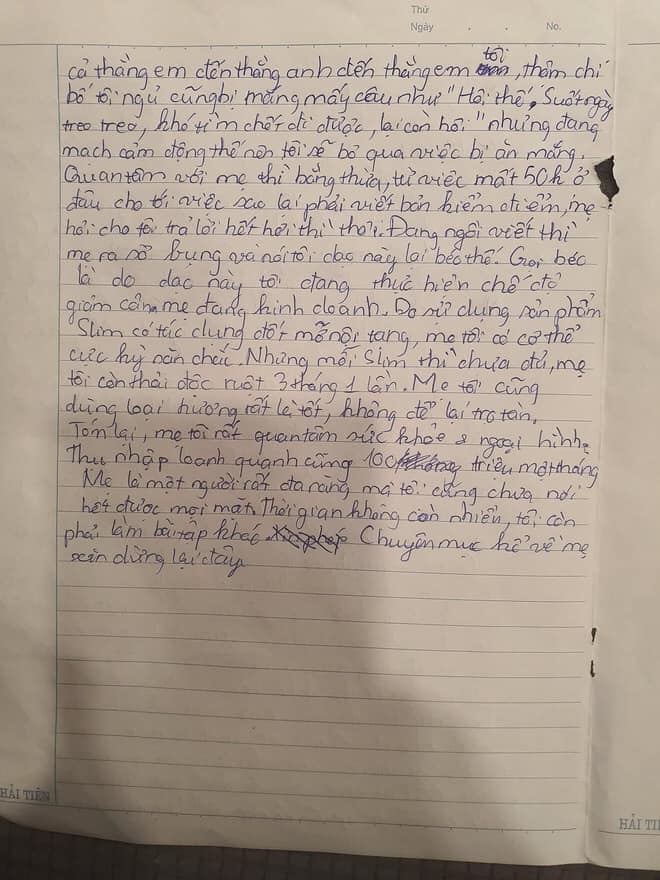 Thứ
Ngày . . No.
cả thằng em đến thằng anh đến thằng em tôi, thậm chí
bố tôi ngủ cũng bị mắng mấy câu như "Hôi thế, Suốt ngày
treo treo, khó tìm chết đi được, lại còn hôi" nhưng đang
mạch cảm động thế nên tôi sẽ bỏ qua việc bị ăn mắng.
Quan tâm với mẹ thì bằng thừa, từ việc mất 50k ở
đâu cho tới việc sao lại phải viết bản kiểm điểm, mẹ
hỏi cho tôi trả lời hết hơi thì thôi. Đang ngồi viết thì
mẹ ra sờ bụng và nói tôi dạo này lại béo thế. Gọi béo
là do dạo này tôi đang thực hiện chế độ
giảm cân mẹ đang kinh doanh. Do sử dụng sản phẩm
Slim có tác dụng đốt mỡ nội tạng, mẹ tôi có cơ thể
cực kỳ săn chắc. Nhưng mỗi Slim thì chưa đủ, mẹ
tôi còn thải độc ruột 3 tháng 1 lần. Mẹ tôi cũng
dùng loại hương rất là tốt, không để lại tro tàn.
Tóm lại, mẹ tôi rất quan tâm sức khỏe & ngoại hình.
Thu nhập loanh quanh cũng 100 triệu một tháng
Mẹ là một người rất đa năng mà tôi cũng chưa nói
hết được mọi mặt. Thời gian không còn nhiều, tôi còn
phải làm bài tập khác. Chuyên mục kể về mẹ
xin dừng lại đây.
HẢI TIẾN
HẢI TI